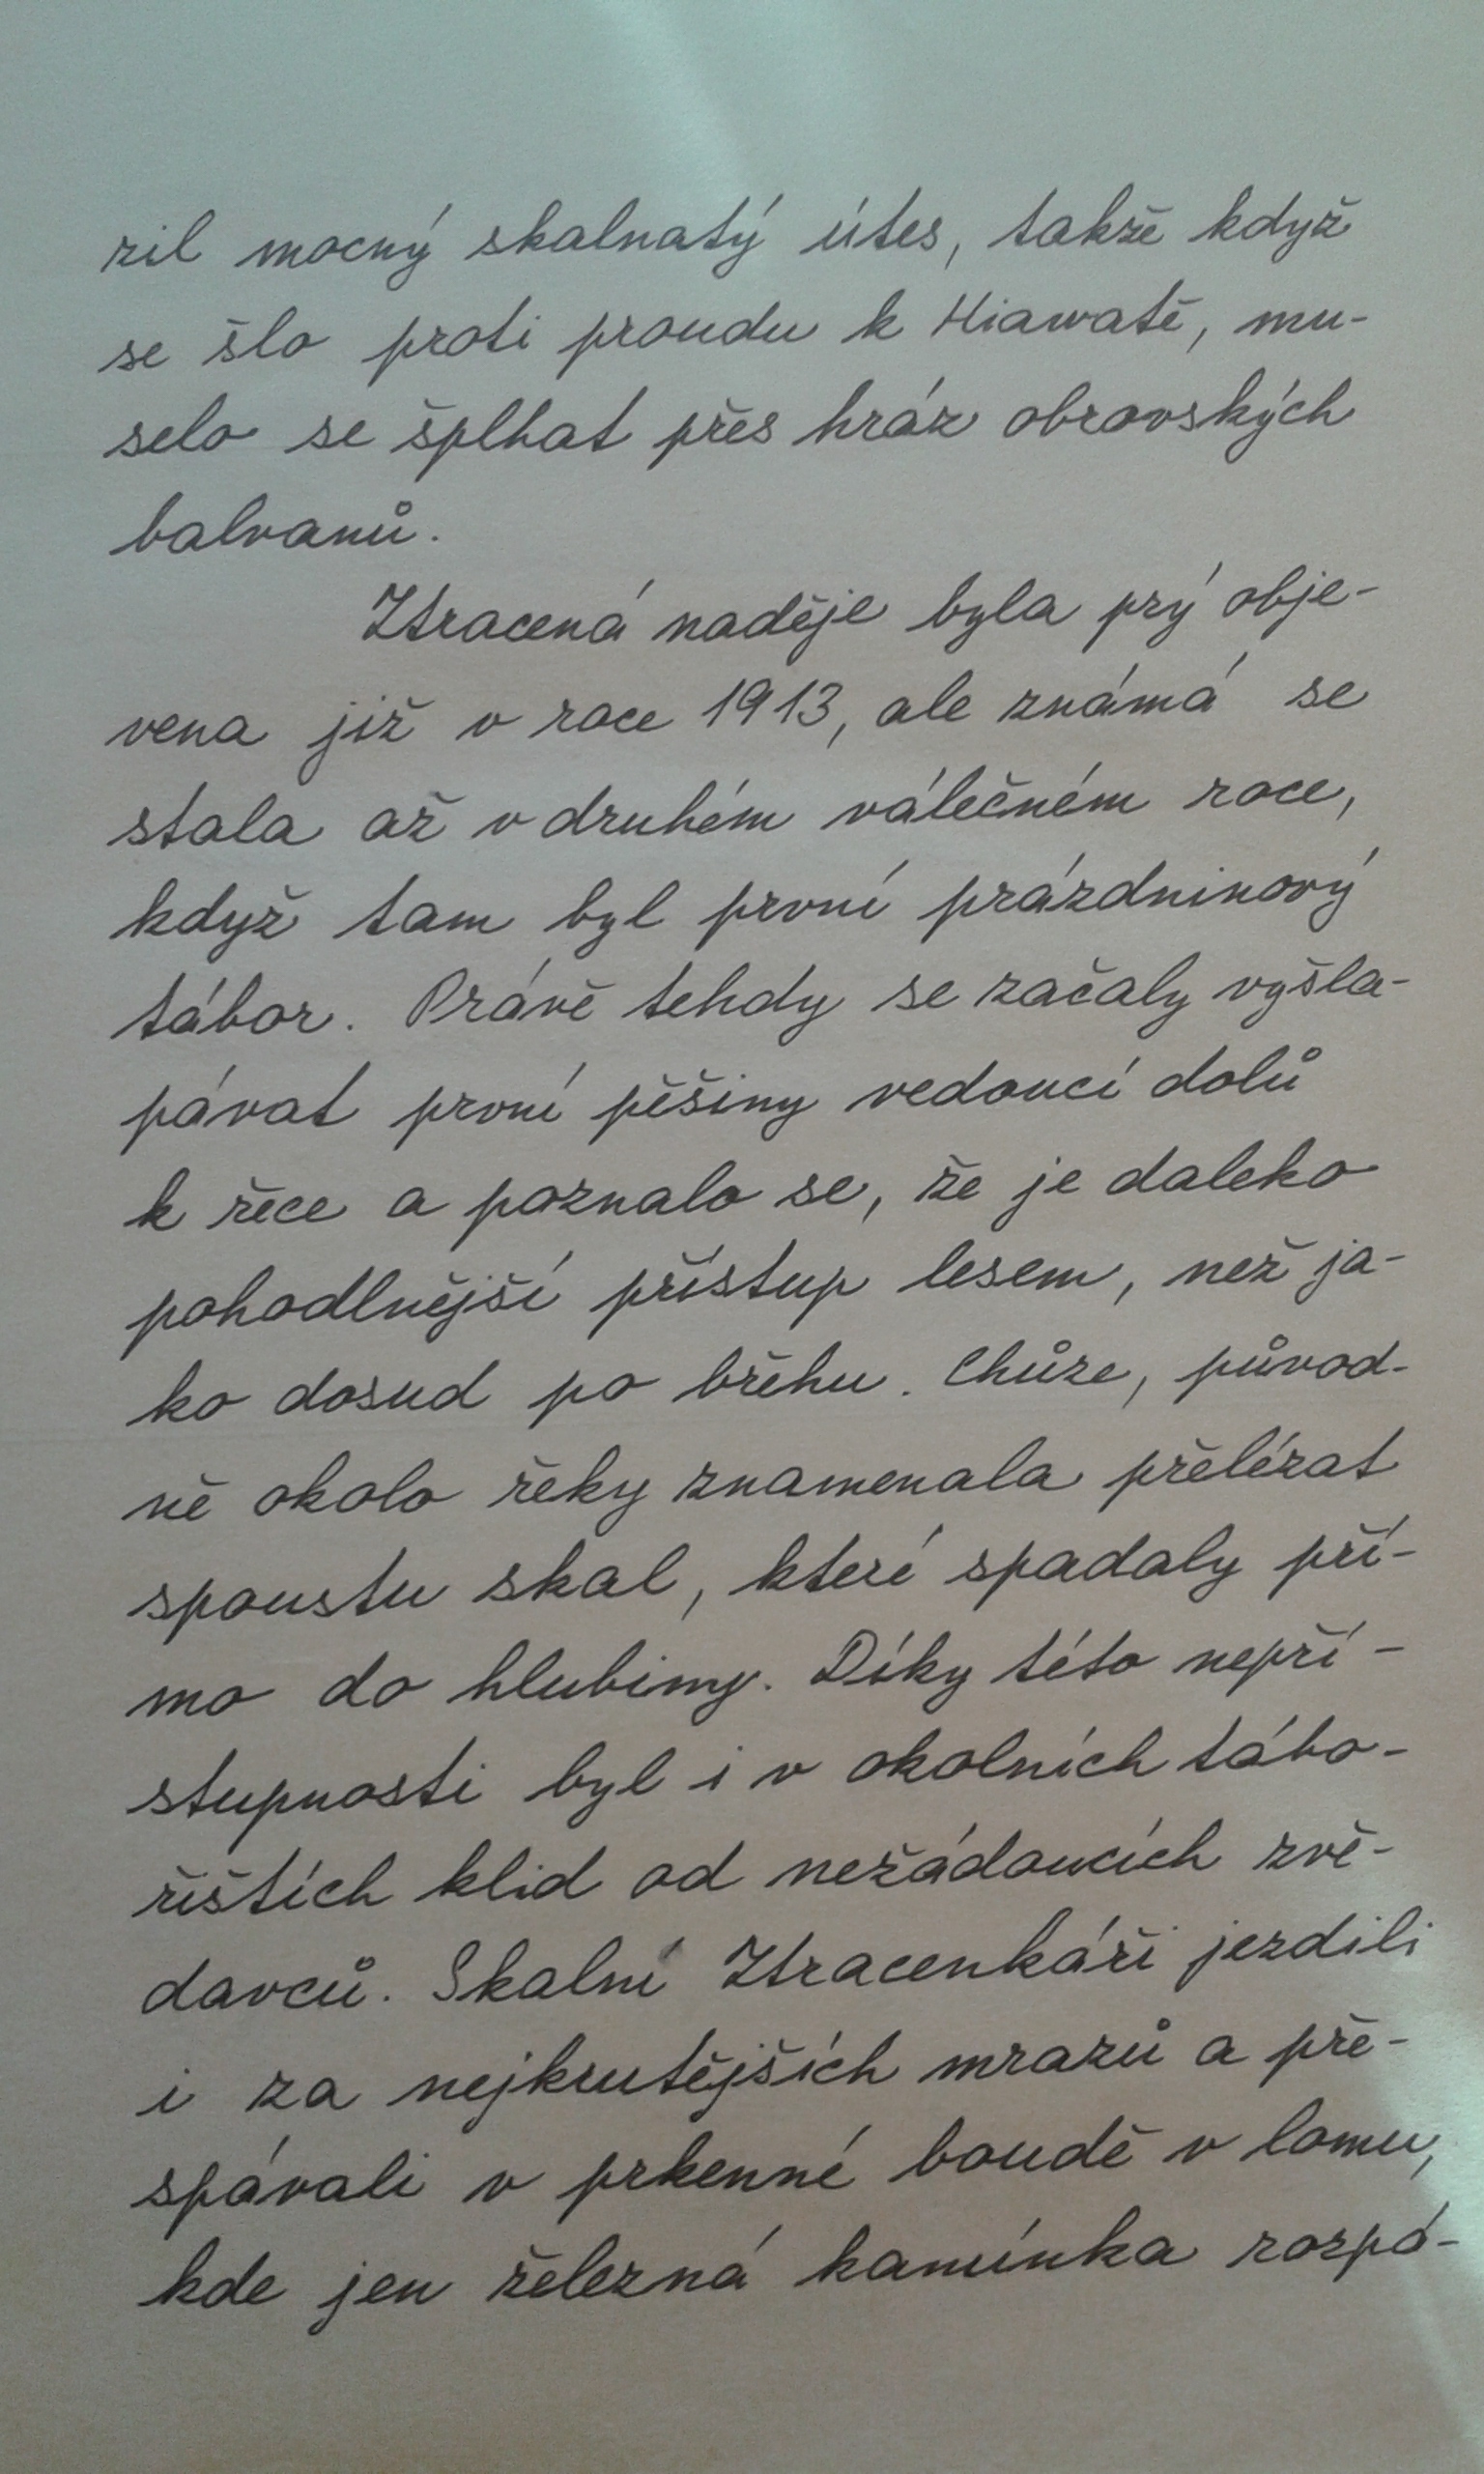 zil mocný skalnatý útes, takže když
se šlo proti proudu k Hiawatě, mu-
selo se šplhat přes hráz obrovských
balvanů.
Ztracená naděje byla prý obje-
vena již v roce 1913, ale známá se
stala až v druhém válečném roce,
když tam byl první prázdninový
tábor. Právě tehdy se začaly vyšla-
pávat první pěšiny vedoucí dolů
k řece a poznalo se, že je daleko
pohodlnější přístup lesem, než ja-
ko dosud po břehu. Chůze, původ-
ně okolo řeky znamenala přelézat
spoustu skal, které spadaly pří-
mo do hlubiny. Díky této nepří-
stupnosti byl i v okolních tábo-
řištích klid od nežádoucích zvě-
davců. Skalní Ztracenkáři jezdili
i za nejkrutějších mrazů a pře-
spávali v prkenné boudě v lomu,
kde jen železná kamínka rozpá-